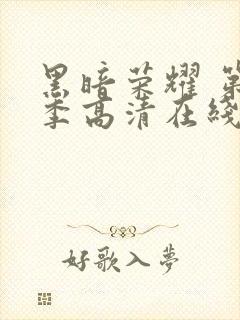 黑暗荣耀 第
季高清在线
好歌入夢